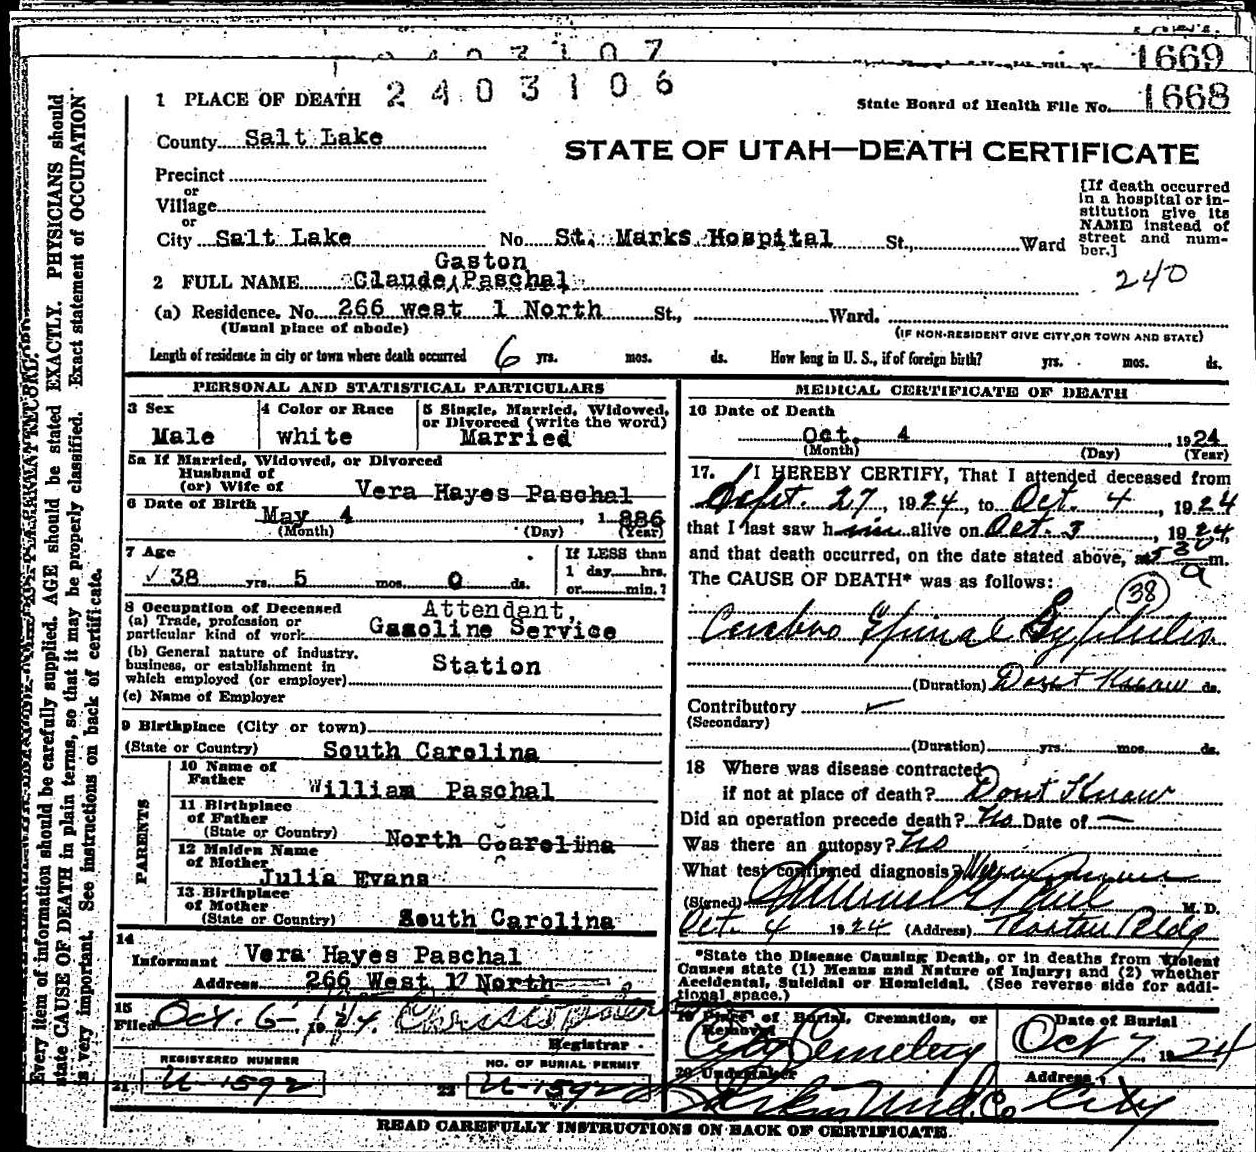 1669
2403107
1 PLACE OF DEATH 2403106
State Board of Health File No. 1668
County Salt Lake
STATE OF UTAH—DEATH CERTIFICATE
Precinct
or
Village
or
City Salt Lake No. St. Marks Hospital St., Ward
[If death occurred
in a hospital or in-
stitution give its
NAME instead of
street and num-
ber.]
Gaston
2 FULL NAME Claude Paschal
240
(a) Residence. No. 266 west 1 North St., Ward.
(Usual place of abode)
(IF NON-RESIDENT GIVE CITY, OR TOWN AND STATE)
Length of residence in city or town where death occurred 6 yrs. mos. ds. How long in U. S., if of foreign birth? yrs. mos. ds.
PERSONAL AND STATISTICAL PARTICULARS
3 Sex
Male
4 Color or Race
white
5 Single, Married, Widowed,
or Divorced (write the word)
Married
5a If Married, Widowed, or Divorced
Husband of
(or) Wife of Vera Hayes Paschal
6 Date of Birth May 4, 1886
(Month) (Day) (Year)
7 Age
38 yrs. 5 mos. 0 ds.
If LESS than
1 day hrs.
or min.?
8 Occupation of Deceased
(a) Trade, profession or
particular kind of work
Attendant,
Gasoline Service
(b) General nature of industry,
business, or establishment in
which employed (or employer)
Station
(c) Name of Employer
9 Birthplace (City or town)
(State or Country) South Carolina
PARENTS
10 Name of
Father William Paschal
11 Birthplace
of Father
(State or Country) North Coarolina
12 Maiden Name
of Mother
Julia Evans
13 Birthplace
of Mother
(State or Country) South Carolina
14
Informant Vera Hayes Paschal
Address 266 West 1 North
15
Filed Oct. 6- 1924.
Registrar
REGISTERED NUMBER
21 U-1592
NO. OF BURIAL PERMIT
22 U-1592
MEDICAL CERTIFICATE OF DEATH
16 Date of Death
Oct. 4, 1924
(Month) (Day) (Year)
17. I HEREBY CERTIFY, That I attended deceased from
Sept. 27, 1924, to Oct. 4, 1924
that I last saw him alive on Oct. 3, 1924,
and that death occurred, on the date stated above, at 5 30 a m.
The CAUSE OF DEATH* was as follows:
38
Cerebro Spinal Syphilis
(Duration) Dont Know ds.
Contributory
(Secondary)
(Duration) yrs. mos. ds.
18 Where was disease contracted
if not at place of death? Dont Know
Did an operation precede death? No Date of —
Was there an autopsy? No
What test confirmed diagnosis?
(Signed) M. D.
Oct. 4 1924 (Address) Bldg
*State the Disease Causing Death, or in deaths from Violent
Causes state (1) Means and Nature of Injury; and (2) whether
Accidental, Suicidal or Homicidal. (See reverse side for addi-
tional space.)
19 Place of Burial, Cremation, or
Removal
City Cemetery
Date of Burial
Oct 7, 1924
20 Undertaker
Address
Und. Co City
READ CAREFULLY INSTRUCTIONS ON BACK OF CERTIFICATE
Every item of information should be carefully supplied. AGE should be stated EXACTLY. PHYSICIANS should
state CAUSE OF DEATH in plain terms, so that it may be properly classified. Exact statement of OCCUPATION
is very important. See instructions on back of certificate.